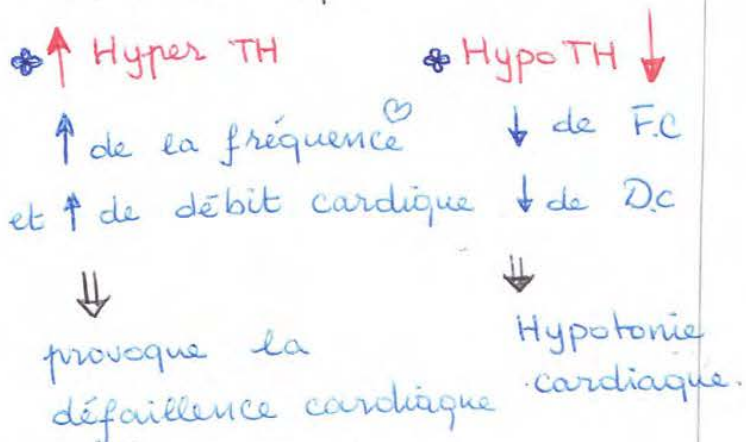 ↑ Hyper TH
↑ de la fréquence
et ↑ de débit cardique
⇓
provoque la
défaillence cardiaque
Hypo TH ↓
↓ de F.C
↓ de D.C
⇓
Hypotonie
cardiaque.